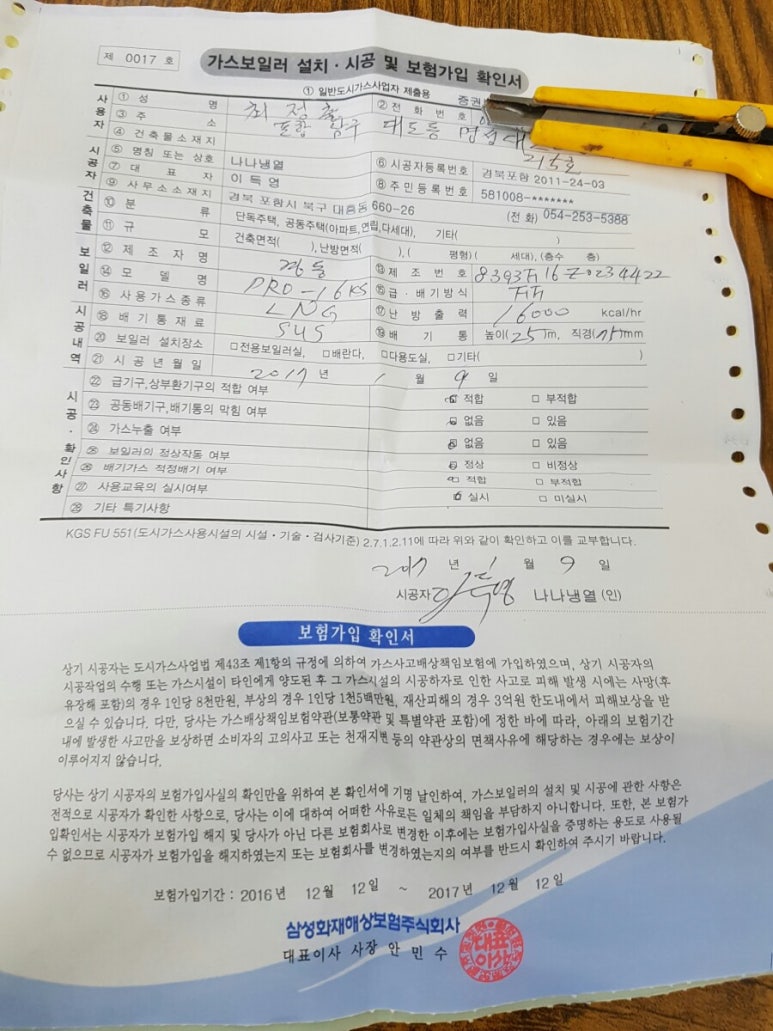 제 0017 호
가스보일러 설치·시공 및 보험가입 확인서
① 일반도시가스사업자 제출용 증권
사용자
① 성 명 최정철 ② 전화번호
③ 주 소 포항 남구 대도동
④ 건축물소재지 215호
시공자
⑤ 명칭 또는 상호 나나냉열 ⑥ 시공자등록번호 경북포함 2011-24-03
⑦ 대 표 자 이 득 영 ⑧ 주민등록번호 581008-*******
⑨ 사무소소재지 경북 포함시 북구 대흥동 660-26 (전화) 054-253-5388
건축물
⑩ 분 류 단독주택, 공동주택(아파트,연립,다세대), 기타( )
⑪ 규 모 건축면적( ),난방면적( ),( 평형)( 세대),(층수 층)
보일러
⑫ 제 조 자 명 경동 ⑬ 제 조 번 호
⑭ 모 델 명 PRO-16KS ⑮ 급·배기방식 FF
⑯ 사용가스종류 LNG ⑰ 난 방 출 력 16000 kcal/hr
시공내역
⑱ 배기통재료 SUS ⑲ 배 기 통 높이( )m, 직경( )mm
⑳ 보일러 설치장소 □전용보일러실, □베란다, □다용도실, □기타( )
㉑ 시 공 년 월 일 2017 년 1 월 9 일
시공·확인사항
㉒ 급기구,상부환기구의 적합 여부 □ 적합 □ 부적합
㉓ 공동배기구,배기통의 막힘 여부 □ 없음 □ 있음
㉔ 가스누출 여부 □ 없음 □ 있음
㉕ 보일러의 정상작동 여부 □ 정상 □ 비정상
㉖ 배기가스 적정배기 여부 □ 적합 □ 부적합
㉗ 사용교육의 실시여부 □ 실시 □ 미실시
㉘ 기타 특기사항
KGS FU 551(도시가스사용시설의 시설·기술·검사기준) 2.7.1.2.11에 따라 위와 같이 확인하고 이를 교부합니다.
2017 년 1 월 9 일
시공자 이득영 나나냉열 (인)
보험가입 확인서
상기 시공자는 도시가스사업법 제43조 제1항의 규정에 의하여 가스사고배상책임보험에 가입하였으며, 상기 시공자의
시공작업의 수행 또는 가스시설이 타인에게 양도된 후 그 가스시설의 시공하자로 인한 사고로 피해 발생 시에는 사망(후
유장해 포함)의 경우 1인당 8천만원, 부상의 경우 1인당 1천5백만원, 재산피해의 경우 3억원 한도내에서 피해보상을 받
으실 수 있습니다. 다만, 당사는 가스배상책임보험약관(보통약관 및 특별약관 포함)에 정한 바에 따라, 아래의 보험기간
내에 발생한 사고만을 보상하면 소비자의 고의사고 또는 천재지변 등의 약관상의 면책사유에 해당하는 경우에는 보상이
이루어지지 않습니다.
당사는 상기 시공자의 보험가입사실의 확인만을 위하여 본 확인서에 기명 날인하여, 가스보일러의 설치 및 시공에 관한 사항은
전적으로 시공자가 확인한 사항으로, 당사는 이에 대하여 어떠한 사유로든 일체의 책임을 부담하지 아니합니다. 또한, 본 보험가
입확인서는 시공자가 보험가입 해지 및 당사가 아닌 다른 보험회사로 변경한 이후에는 보험가입사실을 증명하는 용도로 사용될
수 없으므로 시공자가 보험가입을 해지하였는지 또는 보험회사를 변경하였는지의 여부를 반드시 확인하여 주시기 바랍니다.
보험가입기간 : 2016년 12월 12일 ~ 2017년 12월 12일
삼성화재해상보험주식회사
대표이사 사장 안 민 수
대표이사